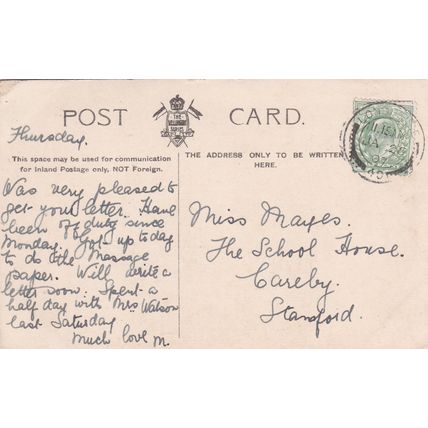 POST CARD.
THE
WELLINGTON
SERIES
Thursday.
This space may be used for communication
for Inland Postage only, NOT Foreign.
THE ADDRESS ONLY TO BE WRITTEN
HERE.
Was very pleased to
get your letter. Have
been off duty since
Monday. Got up today
to do the Massage
paper. Will write a
letter soon. Spent a
half day with Mrs Watson
last Saturday
Much love M.
Miss Mayes.
The School House.
Careby.
Stamford.
LONDON